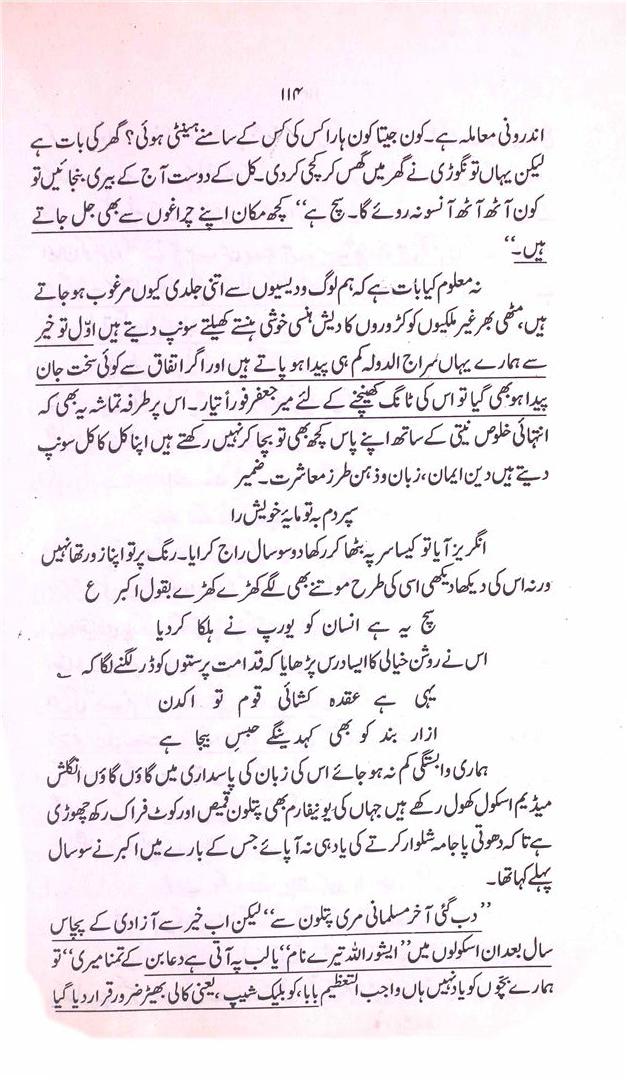 ۱۱۴
اندرونی معاملہ ہے۔ کون جیتا کون ہارا کس کی کس کے سامنے ہیٹی ہوئی؟ گھر کی بات ہے
لیکن یہاں تو نگوڑی نے گھر میں گھس کر کچی کردی۔ کل کے دوست آج کے بیری بنجائیں تو
کون آٹھ آٹھ آنسو نہ روئے گا۔ سچ ہے“ کچھ مکان اپنے چراغوں سے بھی جل جاتے
ہیں۔“
نہ معلوم کیا بات ہے کہ ہم لوگ ودیسیوں سے اتنی جلدی کیوں مرغوب ہو جاتے
ہیں، مٹھی بھر غیر ملکیوں کو کڑوروں کا دیش ہنسی خوشی ہنستے کھیلتے سونپ دیتے ہیں اوّل تو خیر
سے ہمارے یہاں سُراج الدولہ کم ہی پیدا ہو پاتے ہیں اور اگر اتفاق سے کوئی سخت جان
پیدا ہو بھی گیا تو اس کی ٹانگ کھینچنے کے لئے میر جعفر فوراً تیار۔ اس پر طرفہ تماشہ یہ بھی کہ
انتہائی خلوص نیتی کے ساتھ اپنے پاس کچھ بھی تو بچا کر نہیں رکھتے ہیں اپنا کل کا کل سونپ
دیتے ہیں دین ایمان، زبان و ذہن طرز معاشرت۔ ضمیر
سپردم بہ تو مایۂ خویش را
انگریز آیا تو کیسا سر پہ بٹھا کر رکھا دو سو سال راج کرایا۔ رنگ پر تو اپنا زور تھا نہیں
ورنہ اس کی دیکھا دیکھی اسی کی طرح موتنے بھی لگے کھڑے کھڑے بقول اکبر ع
سچ یہ ہے انسان کو یورپ نے ہلکا کردیا
اس نے روشن خیالی کا ایسا درس پڑھایا کہ قدامت پرستوں کو ڈر لگنے لگا کہ ؎
یہی ہے عقدہ کشائی قوم تو اکدن
ازار بند کو بھی کہدینگے حبسِ بیجا ہے
ہماری وابستگی کم نہ ہو جائے اس کی زبان کی پاسداری میں گاؤں گاؤں انگلش
میڈیم اسکول کھول رکھے ہیں جہاں کی یونیفارم بھی پتلون قمیص اور کوٹ فراک رکھ چھوڑی
ہے تاکہ دھوتی پاجامہ شلوار کرتے کی یاد ہی نہ آ پائے جس کے بارے میں اکبر نے سو سال
پہلے کہا تھا۔
”دب گئی آخر مسلمانی مری پتلون سے“ لیکن اب خیر سے آزادی کے پچاس
سال بعد ان اسکولوں میں ”ایشور اللہ تیرے نام“ یا لب پہ آتی ہے دعا بن کے تمنا میری“ تو
ہمارے بچّوں کو یاد نہیں ہاں واجب التعظیم بابا، کو بلیک شیپ، یعنی کالی بھیڑ ضرور قرار دیا گیا